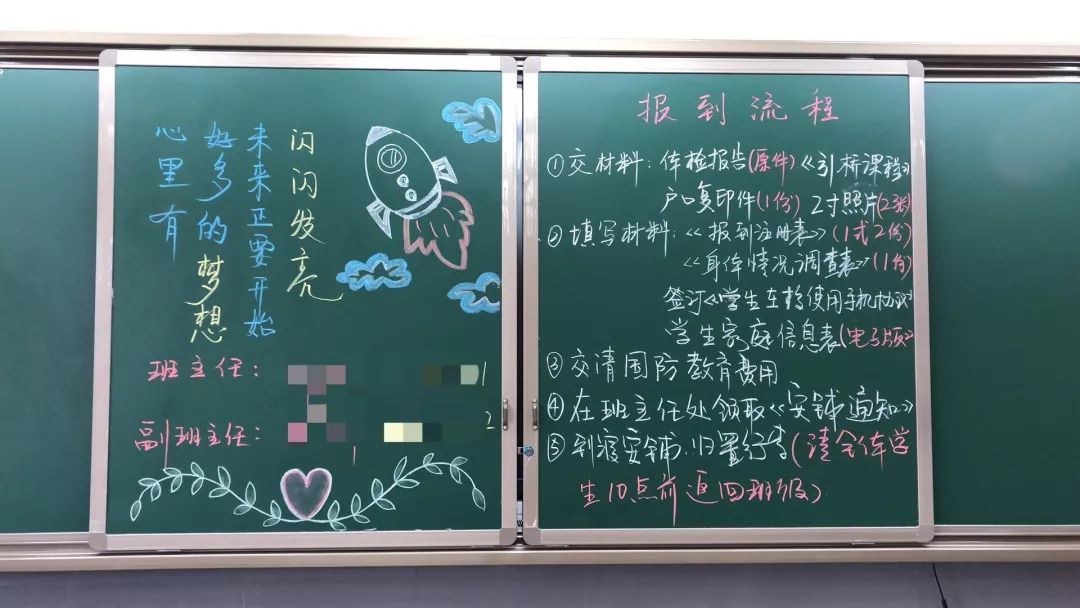 心里有
好多的梦想
未来正要开始
闪闪发亮
班主任：
1
副班主任：
2
1
报到流程
①交材料：体检报告(原件)《引桥课程》
户口复印件(1份) 2寸照片(2张)
②填写材料：《报到注册表》(1式2份)
《身体情况调查表》(1份)
签订《学生在校使用手机协议》
学生家庭信息表(电子版)
③交清国防教育费用
④在班主任处领取《安铺通知》
⑤到寝安铺，归置行李(请全体学
生10点前返回班级)